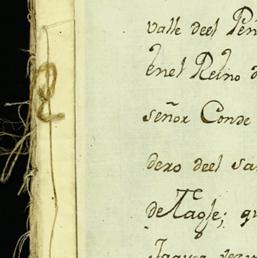 valle deel Pen
Enel Reino d
señor Conde
dero deel sa
de Tagle; q